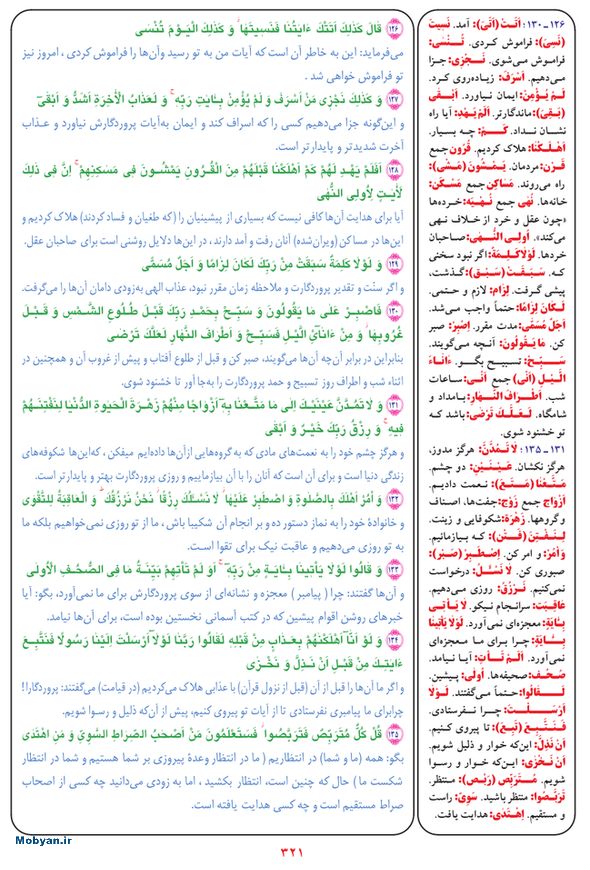 ۱۲۶ قَالَ كَذَلِكَ أَتَتْكَ ءَايَتُنَا فَنَسِيتَهَا ۖ وَ كَذَلِكَ الْيَوْمَ تُنْسَى
می‌فرماید: این به خاطر آن است که آیات من به تو رسید وآن‌ها را فراموش کردی ، امروز نیز
تو فراموش خواهی شد .
۱۲۷ وَ كَذَلِكَ نَجْزِى مَنْ أَسْرَفَ وَ لَمْ يُؤْمِنْ بِـَايَتِ رَبِّهِ ۚ وَ لَعَذَابُ الْأَخِرَةِ أَشَدُّ وَ أَبْقَى
و این‌گونه جزا می‌دهیم کسی را که اسراف کند و ایمان به‌آیات پروردگارش نیاورد و عذاب
آخرت شدیدتر و پایدارتر است.
۱۲۸ أَفَلَمْ يَهْدِ لَهُمْ كَمْ أَهْلَكْنَا قَبْلَهُمْ مِنَ الْقُرُونِ يَمْشُونَ فِى مَسَكِنِهِمْ ۗ إِنَّ فِى ذَلِكَ
لَأَيَتٍ لِأُولِى النُّهَى
آیا برای هدایت آن‌ها کافی نیست که بسیاری از پیشینیان را (که طغیان و فساد کردند) هلاک کردیم و
این‌ها در مساکن (ویران‌شده) آنان رفت و آمد دارند ، در این‌ها دلایل روشنی است برای صاحبان عقل.
۱۲۹ وَ لَوْ لَا كَلِمَةٌ سَبَقَتْ مِنْ رَبِّكَ لَكَانَ لِزَامًا وَ أَجَلٌ مُسَمًّى
و اگر سنّت و تقدیر پروردگارت و ملاحظه زمان مقرر نبود، عذاب الهی به‌زودی دامان آن‌ها را می‌گرفت.
۱۳۰ فَاصْبِرْ عَلَى مَا يَقُولُونَ وَ سَبِّحْ بِحَمْدِ رَبِّكَ قَبْلَ طُلُوعِ الشَّمْسِ وَ قَبْلَ
غُرُوبِهَا ۖ وَ مِنْ ءَانَآئِ الَّيْلِ فَسَبِّحْ وَ أَطْرَافَ النَّهَارِ لَعَلَّكَ تَرْضَى
بنابراین در برابر آن‌چه آن‌ها می‌گویند، صبر کن و قبل از طلوع آفتاب و پیش از غروب آن و همچنین در
اثناء شب و اطراف روز تسبیح و حمد پروردگارت را به‌جا آور تا خشنود شوی.
۱۳۱ وَ لَا تَمُدَّنَّ عَيْنَيْكَ إِلَى مَا مَتَّعْنَا بِهِ أَزْوَاجًا مِنْهُمْ زَهْرَةَ الْحَيَوةِ الدُّنْيَا لِنَفْتِنَهُمْ
فِيهِ ۚ وَ رِزْقُ رَبِّكَ خَيْرٌ وَ أَبْقَى
و هرگز چشم خود را به نعمت‌های مادی که به گروه‌هایی ازآن‌ها داده‌ایم میفکن، که‌این‌ها شکوفه‌های
زندگی دنیا است و برای آن است که آنان را با آن بیازماییم و روزی پروردگارت بهتر و پایدارتر است.
۱۳۲ وَ أْمُرْ أَهْلَكَ بِالصَّلَوةِ وَ اصْطَبِرْ عَلَيْهَا ۖ لَا نَسْـَلُكَ رِزْقًا ۖ نَحْنُ نَرْزُقُكَ ۗ وَ الْعَاقِبَةُ لِلتَّقْوَى
و خانوادهٔ خود را به نماز دستور ده و بر انجام آن شکیبا باش ، ما از تو روزی نمی‌خواهیم بلکه ما
به تو روزی می‌دهیم و عاقبت نیک برای تقوا است.
۱۳۳ وَ قَالُوا لَوْ لَا يَأْتِينَا بِـَايَةٍ مِنْ رَبِّهِ ۚ أَوَ لَمْ تَأْتِهِمْ بَيِّنَةُ مَا فِى الصُّحُفِ الْأُولَى
و آن‌ها گفتند: چرا ( پیامبر ) معجزه و نشانه‌ای از سوی پروردگارش برای ما نمی‌آورد، بگو: آیا
خبرهای روشن اقوام پیشین که در کتب آسمانی نخستین بوده است، برای آن‌ها نیامد.
۱۳۴ وَ لَوْ أَنَّا أَهْلَكْنَهُمْ بِعَذَابٍ مِنْ قَبْلِهِ لَقَالُوا رَبَّنَا لَوْ لَا أَرْسَلْتَ إِلَيْنَا رَسُولًا فَنَتَّبِعَ
ءَايَتِكَ مِنْ قَبْلِ أَنْ نَذِلَّ وَ نَخْزَى
و اگر ما آن‌ها را قبل از آن (قبل از نزول قرآن) با عذابی هلاک می‌کردیم (در قیامت) می‌گفتند: پروردگارا!
چرابرای ما پیامبری نفرستادی تا از آیات تو پیروی کنیم، پیش از آن‌که ذلیل و رسوا شویم.
۱۳۵ قُلْ كُلٌّ مُتَرَبِّصٌ فَتَرَبَّصُوا ۖ فَسَتَعْلَمُونَ مَنْ أَصْحَبُ الصِّرَاطِ السَّوِيِّ وَ مَنِ اهْتَدَى
بگو: همه (ما و شما) در انتظاریم ( ما در انتظار وعدهٔ پیروزی بر شما هستیم و شما در انتظار
شکست ما ) حال که چنین است، انتظار بکشید ، اما به زودی می‌دانید چه کسی از اصحاب
صراط مستقیم است و چه کسی هدایت یافته است.
۱۲۶ ـ ۱۳۰: أَتَتْ (أَتَى): آمد. نَسِيتَ
(نَسِيَ): فراموش کردی. تُنْسَى:
فراموش می‌شوی. نَجْزِى: جزا
می‌دهیم. أَسْرَفَ: زیاده‌روی کرد.
لَمْ يُؤْمِنْ: ایمان نیاورد. أَبْقَى
(بَقِيَ): ماندگارتر. أَلَمْ يَهْدِ: آیا راه
نشان نداد. كَمْ: چه بسیار.
أَهْلَكْنَا: هلاک کردیم. قُرُون جمع
قَرْن: مردمان. يَمْشُونَ (مَشَى):
راه می‌روند. مَسَاكِن جمع مَسْكَن:
خانه‌ها. نُهَى جمع نُهْيَة: خردها
«چون عقل و خرد از خلاف نهی
می‌کند». أُولِى النُّهَى: صاحبان
خردها. لَوْلَا كَلِمَةٌ: اگر نبود سخنی
که. سَبَقَتْ (سَبَقَ): گذشت،
پیشی گرفت. لِزَام: لازم و حتمی.
لَكَانَ لِزَامًا: حتماً واجب می‌شد.
أَجَلٌ مُسَمًّى: مدت مقرر. اِصْبِرْ: صبر
کن. مَا يَقُولُونَ: آنچه می‌گویند.
سَبِّحْ: تسبیح بگو. ءَانَاءَ
الَّيْلِ (أَنَى) جمع أَنَى: ساعات
شب. أَطْرَافَ النَّهَارِ: بامداد و
شامگاه. لَعَلَّكَ تَرْضَى: باشد که
تو خشنود شوی.
۱۳۱ ـ ۱۳۵: لَا تَمُدَّنَّ: هرگز مدوز،
هرگز نکشان. عَيْنَيْنِ: دو چشم.
مَتَّعْنَا (مَتَّعَ): نعمت دادیم.
أَزْوَاج جمع زَوْج: جفت‌ها، اصناف
و گروهها. زَهْرَة: شکوفایی و زینت.
لِنَفْتِنَ (فَتَنَ): که بیازمائیم.
وَ أْمُرْ: و امر کن. اِصْطَبِرْ (صَبَرَ):
صبوری کن. لَا نَسْـَلُ: درخواست
نمی‌کنیم. نَرْزُقُ: روزی می‌دهیم.
عَاقِبَة: سرانجام نیکو. لَا يَأْتِى
بِـَايَةٍ: معجزه‌ای نمی‌آورد. لَوْلَا يَأْتِينَا
بِـَايَةٍ: چرا برای ما معجزه‌ای
نمی‌آورد. أَلَمْ تَأْتِ: آیا نیامد.
صُحُف: صحیفه‌ها. أُولَى: پیشین.
لَقَالُوا: حتماً می‌گفتند. لَوْلَا
أَرْسَلْتَ: چرا نفرستادی.
فَنَتَّبِعَ (تَبِعَ): تا پیروی کنیم.
أَنْ نَذِلَّ: این‌که خوار و ذلیل شویم.
أَنْ نَخْزَى: این‌که خوار و رسوا
شویم. مُتَرَبِّص (رَبَصَ): منتظر.
تَرَبَّصُوا: منتظر باشید. سَوِيّ: راست
و مستقیم. اِهْتَدَى: هدایت یافت.
Mobyan.ir
۳۲۱